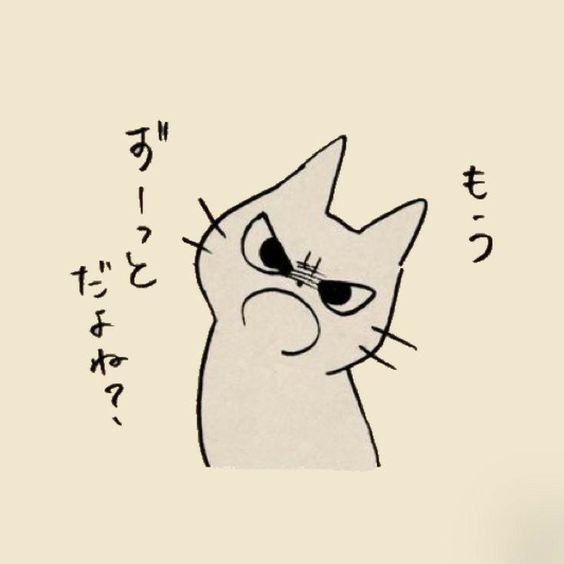 もう
ずーっと
だよね?、